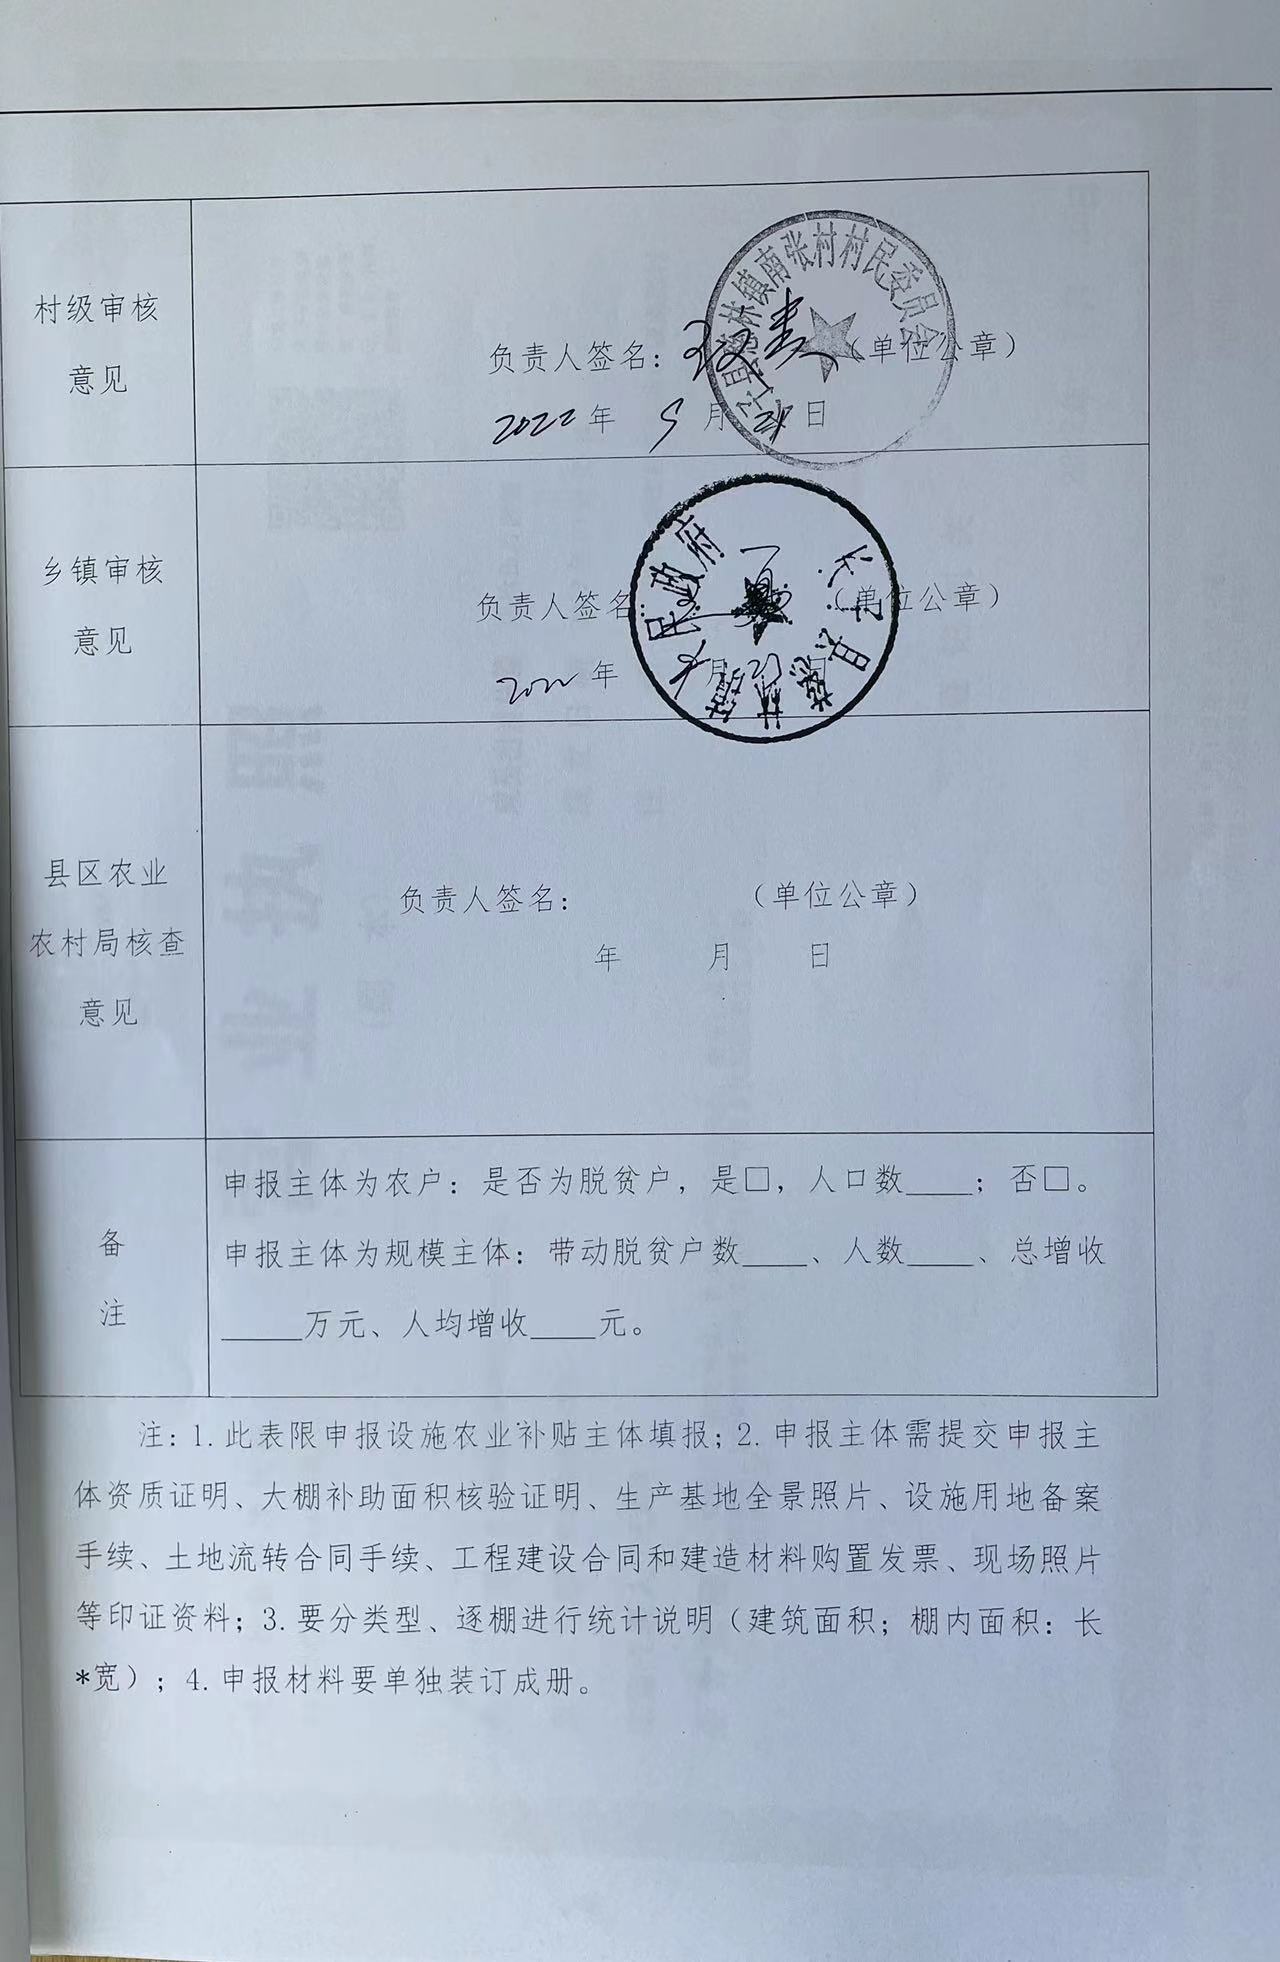 村级审核
意见
负责人签名：
（单位公章）
2022年 5月 21日
镇南张村村民委员会
乡镇审核
意见
负责人签名：
（单位公章）
2022年 月 日
长宁县慈林镇人民政府
县区农业
农村局核查
意见
负责人签名：
（单位公章）
年 月 日
备
注
申报主体为农户：是否为脱贫户，是□，人口数____；否□。
申报主体为规模主体：带动脱贫户数____、人数____、总增收
_____万元、人均增收____元。
注：1.此表限申报设施农业补贴主体填报；2.申报主体需提交申报主
体资质证明、大棚补助面积核验证明、生产基地全景照片、设施用地备案
手续、土地流转合同手续、工程建设合同和建造材料购置发票、现场照片
等印证资料；3.要分类型、逐棚进行统计说明（建筑面积；棚内面积：长
*宽）；4.申报材料要单独装订成册。